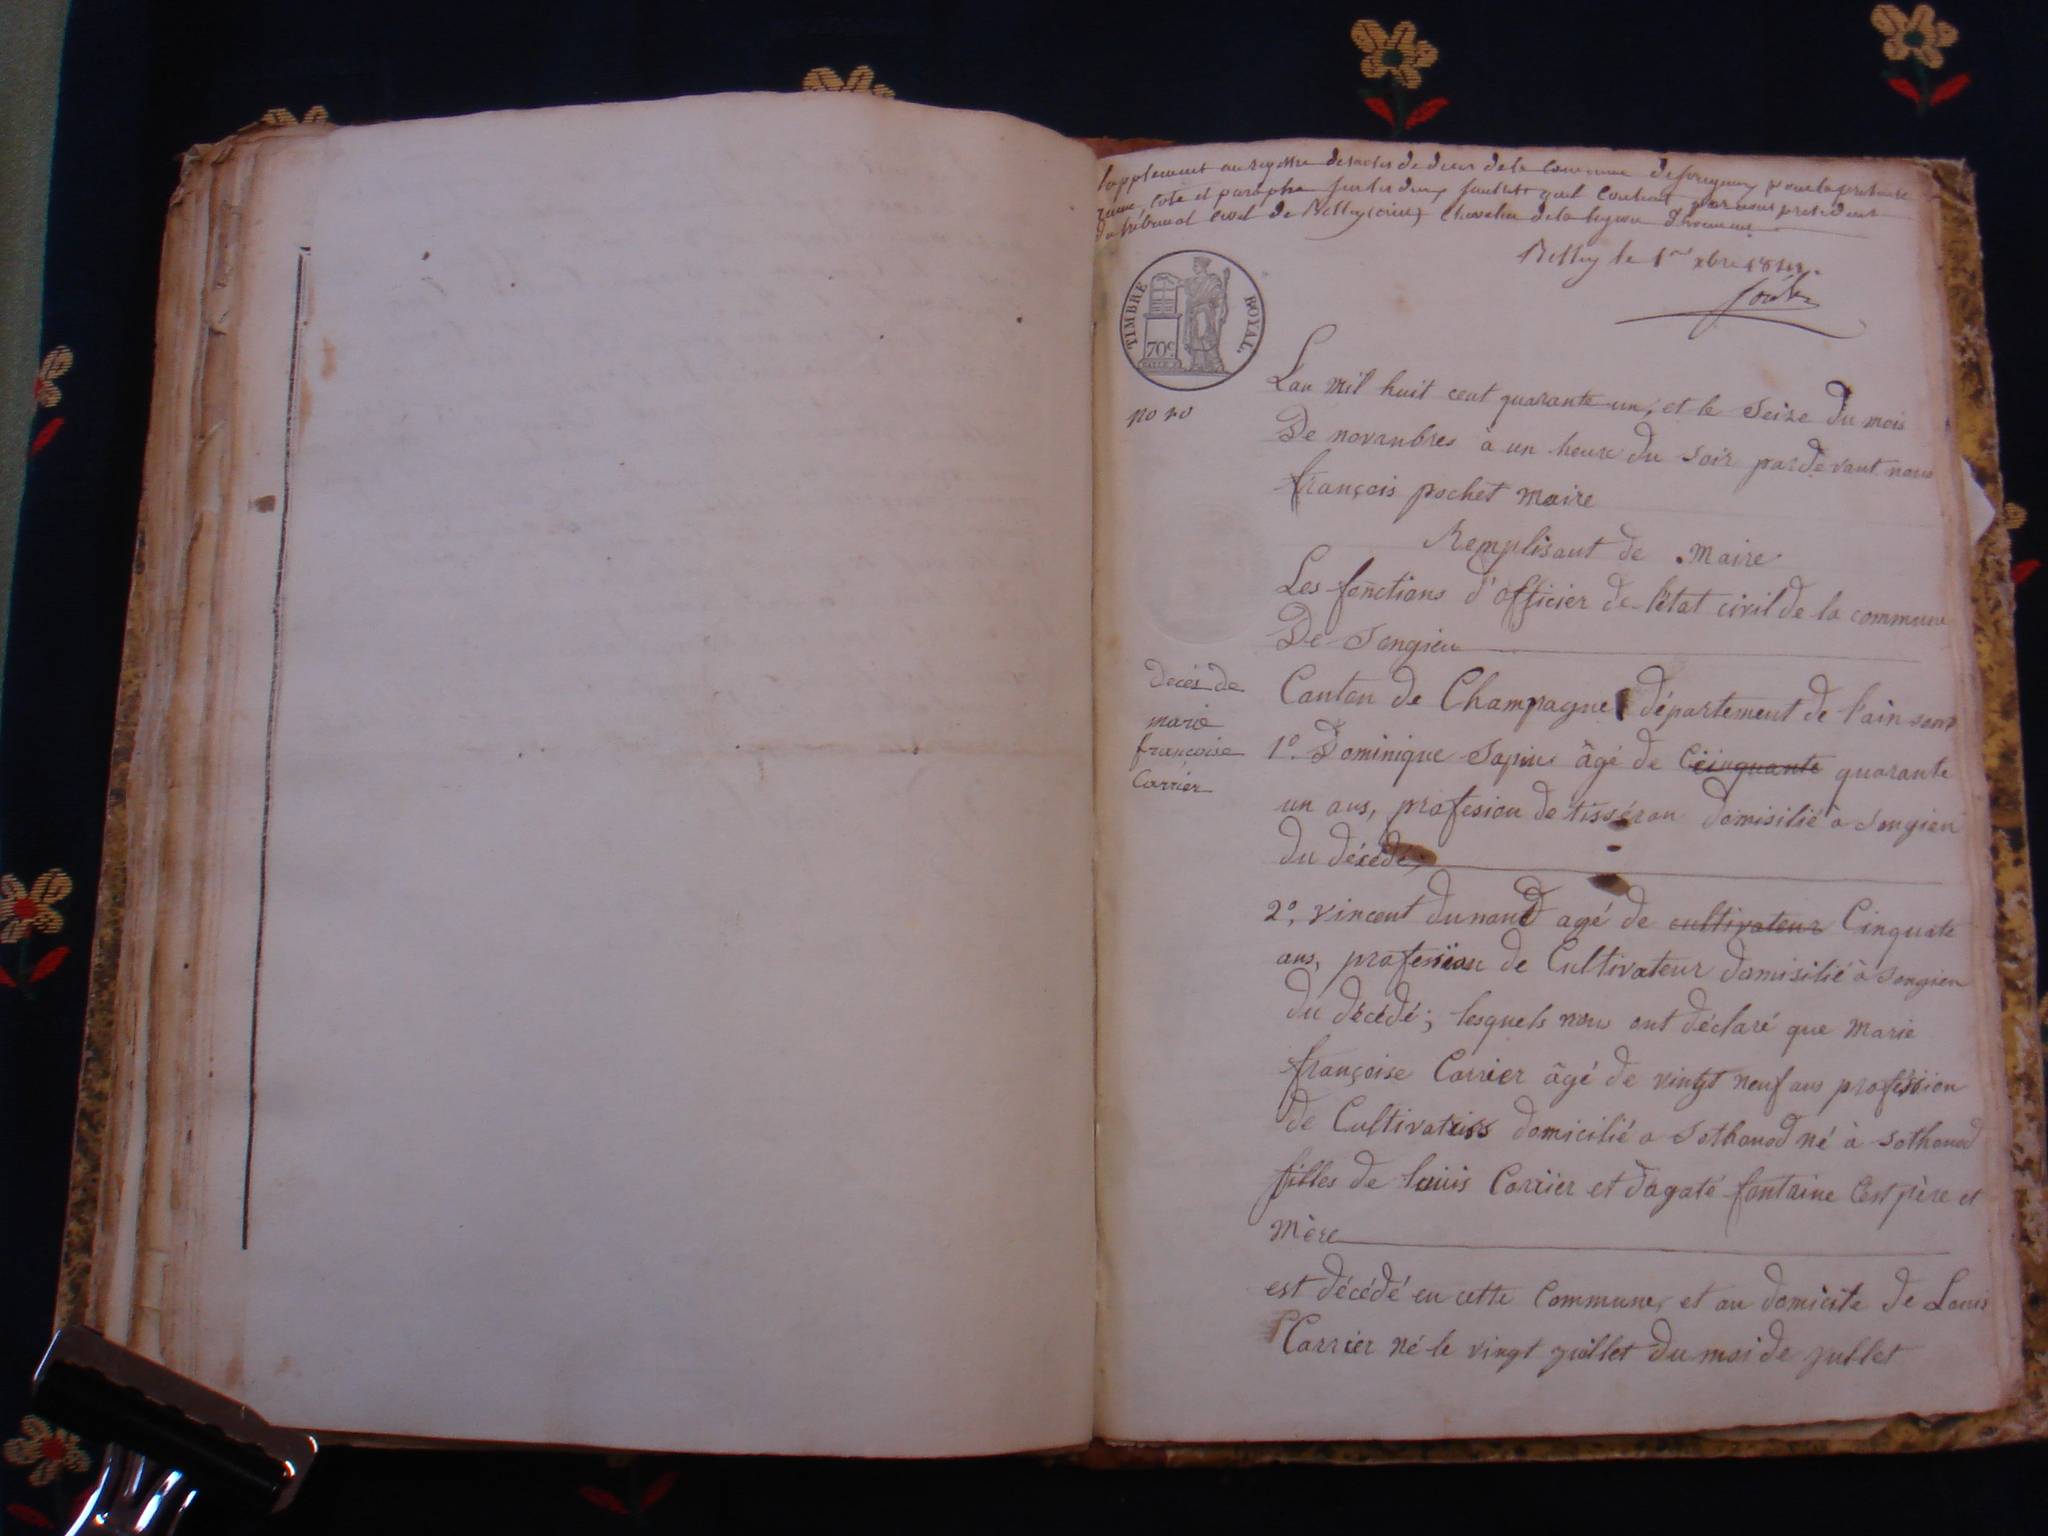 Supplément au registre des actes de décès de la commune de Songieu pour la présente
année, coté et paraphé sur les deux feuillets qu'il contient par nous président
du tribunal civil de Belley (ain) chevalier de la légion d'honneur
Belley le 1er xbre 1841.
TIMBRE ROYAL.
70c
no 20
L'an mil huit cent quarante un, et le Seize du mois
De novanbres à un heure du soir pardevant nous
françois pochet maire
Remplisant de maire
Les fonctions d'officier de l'état civil de la commune
De Songieu
decés de
marie
françoise
Carrier
Canton de Champagne département de l'ain sont
1º. Dominique Sapin âgé de Ceinquante quarante
un ans, profesion de tisséran domisilié à Songieu
du décédé,
2º, vincent dunand agé de cultivateur Cinquate
ans, profession de Cultivateur domisilié à Songieu
du décédé; lesquels nous ont déclaré que Marie
françoise Carrier âgé de vingt neuf ans profession
de Cultivatriss domicilié a Sothonod né à Sothonod
filles de louis Carrier et dagaté fontaine Cest père et
Mère
est décédé en cette Commune, et au domicile de Louis
Carrier né le vingt juillet du moi de jullet